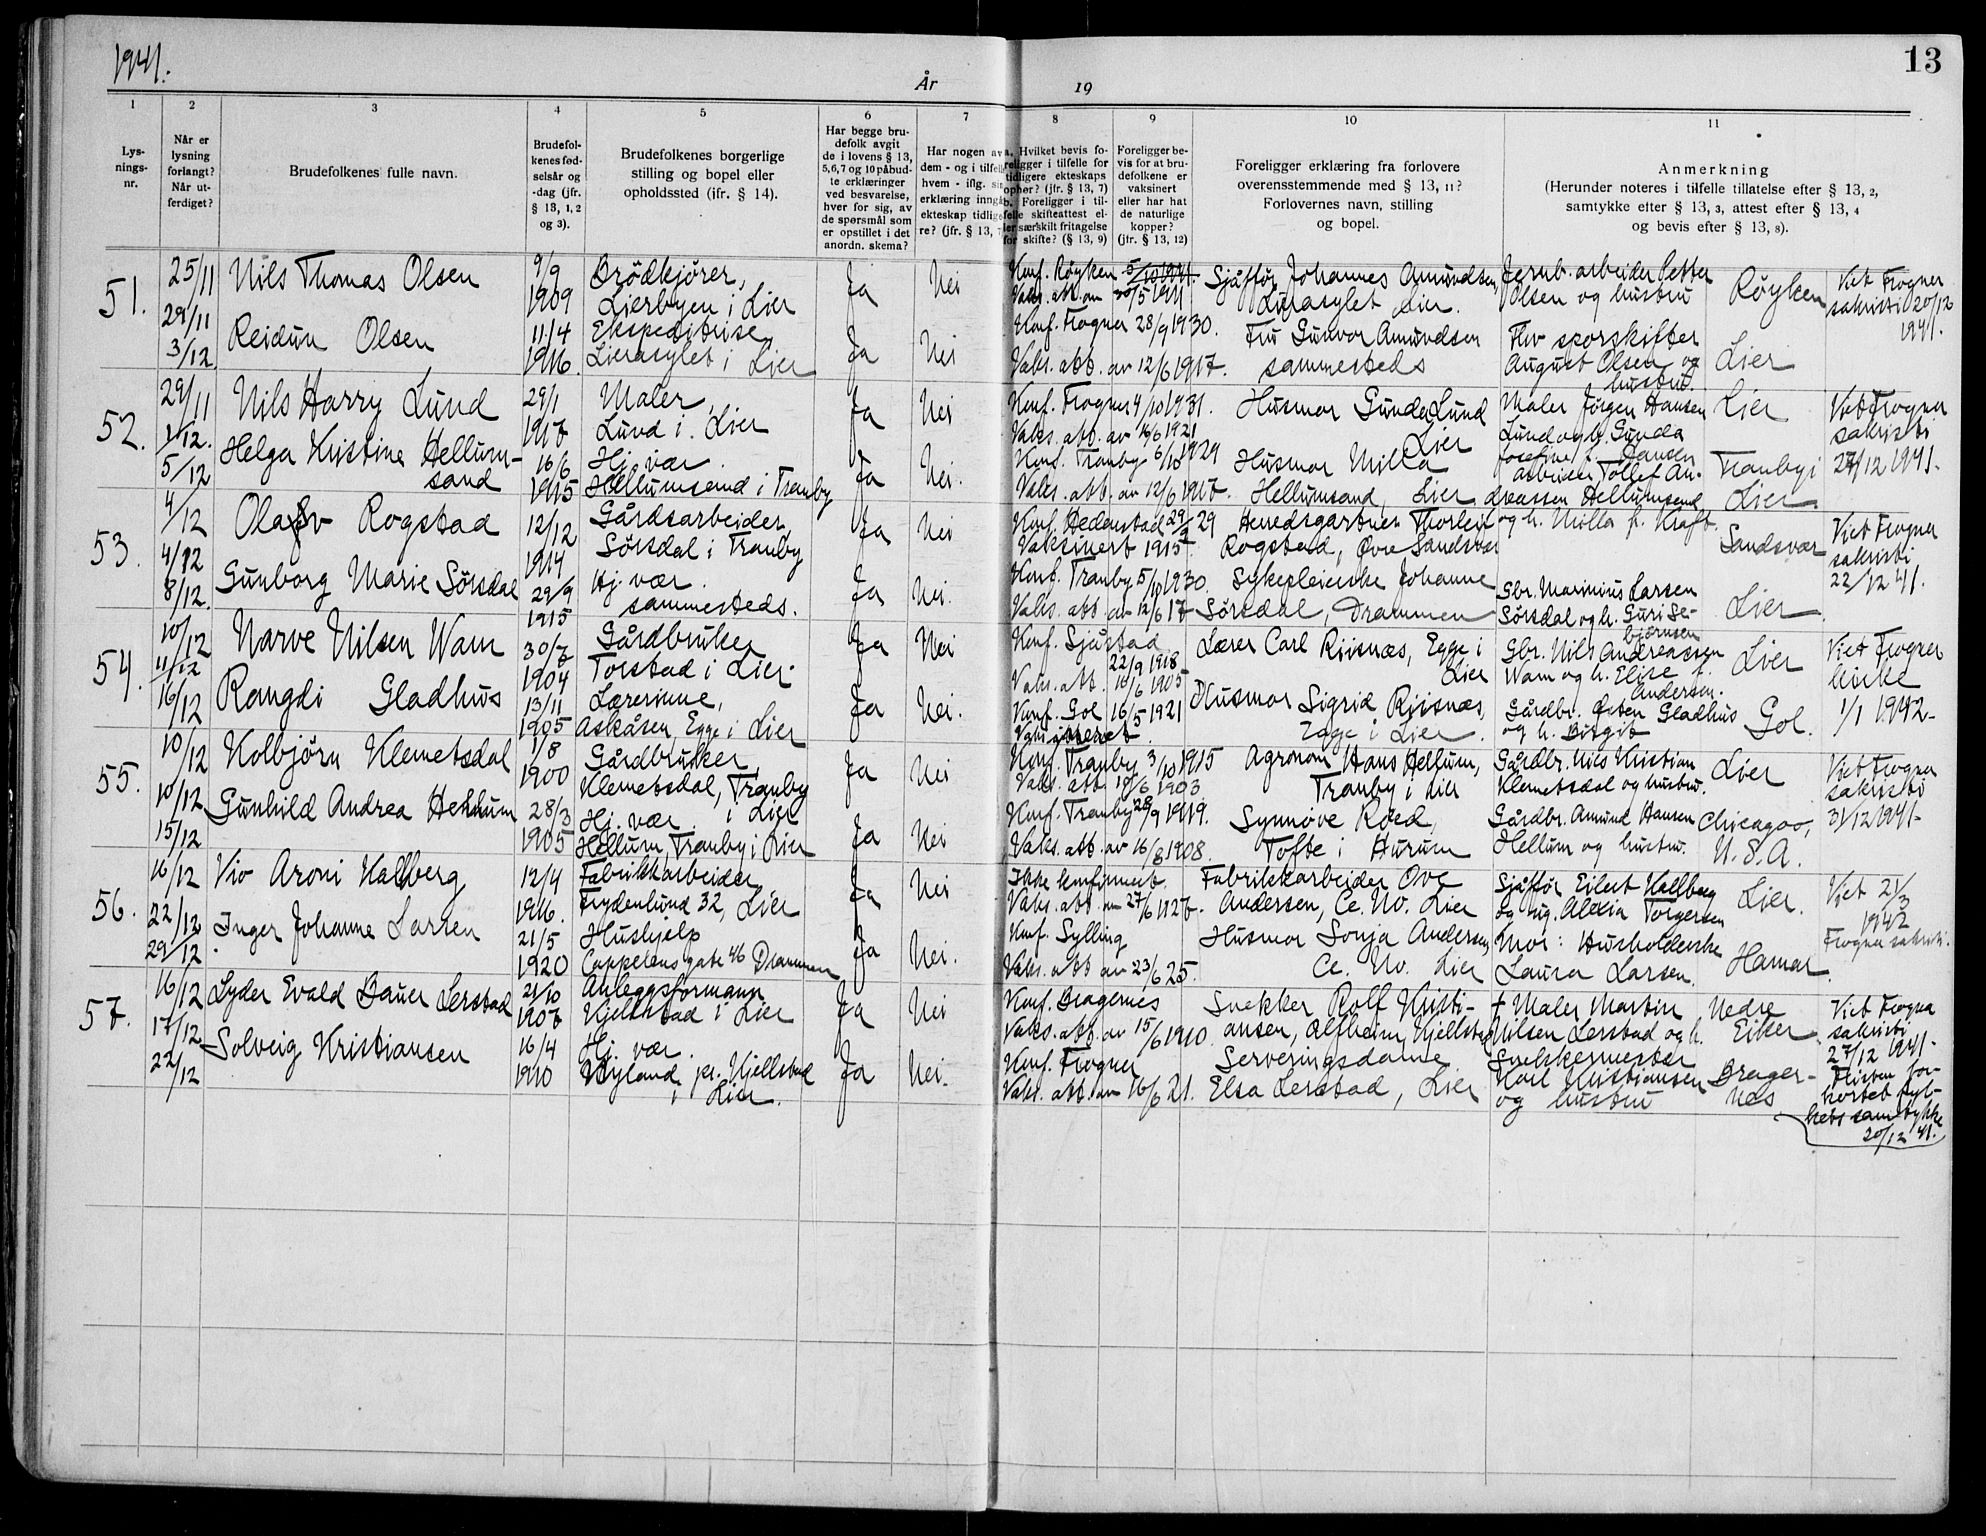 1941.
År 19
13
1 2 3 4 5 6 7 8 9 10 11
Lys-
nings-
nr.
Når er
lysning
forlangt?
Når ut-
ferdiget?
Brudefolkenes fulle navn.
Brudefol-
kenes fød-
selsår og
-dag (jfr.
§ 13, 1, 2
og 3).
Brudefolkenes borgerlige
stilling og bopel eller
opholdssted (jfr. § 14).
Har begge bru-
defolk avgit
de i lovens § 13,
5, 6, 7 og 10 påbud-
te erklæringer
ved besvarelse,
hver for sig, av
de spørsmål som
er opstillet i det
anordn. skema?
Har nogen av
dem - og i tilfelle
hvem - iflg. sin
erklæring inngå
ekteskap tidlige
re? (jfr. § 13, 7
a. Hvilket bevis fo-
religger i tilfelle for
tidligere ekteskaps
opher? (jfr. § 13, 7)
b. Foreligger i til-
felle skifteattest el-
ler særskilt fritagelse
for skifte? (§ 13, 9)
Foreligger be-
vis for at bru-
defolkene er
vaksinert
eller har hat
de naturlige
kopper?
(jfr. § 13, 12)
Foreligger erklæring fra forlovere
overensstemmende med § 13, 11?
Forlovernes navn, stilling
og bopel.
Anmerkning
(Herunder noteres i tilfelle tillatelse efter § 13, 2,
samtykke efter § 13, 3, attest efter § 13, 4
og bevis efter § 13, 8).
51.
25/11
29/11
3/12
Nils Thomas Olsen
9/9
1909
Brödkjører,
Lierbyen i Lier
Ja
Nei
Konf. Røyken 5/10 1924.
Vaks. att. av 20/5 1911
Sjåffør Johannes Amundsen,
Lierasylet Lier.
Jernb. arbeider Petter
Olsen og hustru
Røyken
Viet Frogner
sakristi 20/12
1941.
Reidun Olsen
11/4
1916.
Ekspeditrise
Lierasylet i Lier
Ja
Nei
Konf. Frogner 28/9 1930.
Vaks. att. av 12/6 1917.
Fru Gunvor Amundsen
sammesteds
Fhv sporskifter
August Olsen og
hustru.
Lier
52.
29/11
1/12.
5/12
Nils Harry Lund
29/1
1917
Maler,
Lund i Lier
Ja
Nei
Konf. Frogner 4/10 1931.
Vaks. att. av 16/6 1921
Husmor Gunda Lund
Lier
Maler Jörgen Hansen
Lund og h. Gunda
Josefine f. Hansen
Lier
Viet Frogner
sakristi
27/12 1941.
Helga Kristine Hellum-
sand
16/6
1915
Hj. vær.
Hellumsand i Tranby
Ja
Nei.
Konf. Tranby 6/10 1929
Vaks. att. av 12/6 1917.
Husmor Milla
Hellumsand, Lier
Arbeider Tollef An-
dreassen Hellumsand
og h. Milla f. Kraft.
Tranby i
Lier
53.
4/12
4/12
8/12.
Olav Rogstad
12/12
1914
Gårdsarbeider,
Sörsdal i Tranby
Ja
Nei
Konf. Hedenstad 29/9 29
Vaksinert 1915.
Herredsgartner Thorleif
Rogstad, Øvre Sandsvær
Sandsvær
Viet Frogner
sakristi
22/12 41.
Gunborg Marie Sörsdal
29/9
1915
Hj. vær.
sammesteds.
Ja
Nei.
Konf. Tranby 5/10 1930.
Vaks. att. av 12/6 17
Sykepleierske Johanne
Sörsdal, Drammen
Gbr. Marinius Larsen
Sörsdal og h. Guri Se-
bjørnsen
Lier
54.
10/12
11/12
16/12
Narve Nilsen Wam
30/7
1904
Gårdbruker
Torstad i Lier.
Ja
Nei
Konf. Sjåstad
22/9 1918
Vaks. att. 10/6 1905
Lærer Carl Riisnæs, Egge i
Lier
Gbr. Nils Andreassen
Wam og h. Elise f.
Andersen.
Lier
Viet Frogner
kirke
1/1 1942-
Rangdi Gladhus
13/11
1905
Lærerinne,
Askåsen, Egge i Lier
Ja
Nei.
Konf. Gol 16/5 1921
Vaksinert.
Husmor Sigrid Riisnæs,
Egge i Lier.
Gårdbr. Østen Gladhus
og h. Birgit
Gol.
55.
10/12
10/12
15/12
Kolbjörn Klemetsdal
1/8
1900
Gårdbruker,
Klemetsdal, Tranby
i Lier
Ja
Nei
Konf. Tranby 3/10 1915
Vaks. att. 10/6 1903
Agronom Hans Hellum,
Tranby i Lier
Gårdbr. Nils Kristian
Klemetsdal og hustru.
Lier
Viet Frogner
sakristi
31/12 1941-
Gunhild Andrea Hellum
28/3
1905
Hj. vær
Hellum, Tranby i Lier
Ja
Nei
Konf. Tranby 28/9 1919.
Vaks. att. av 16/8 1908.
Synnøve Röed,
Tofte i Hurum
Gårdbr. Amund Hansen
Hellum og hustru.
Chicagoo,
U.S.A.
56.
16/12
22/12
29/12.
Vio Aroni Hallberg
12/4
1916.
Fabrikkarbeider
Frydenlund 32, Lier
Ja
Nei
Ikke konfirmert.
Vaks. att. av 27/6 1927.
Fabrikkarbeider Ove
Andersen, Ce. No. Lier
Sjåffør Eilert Hallberg
og ug. Alexia Torgersen
Lier.
Viet 21/3
1942
Frogner sakristi.
Inger Johanne Larsen
21/5
1920
Hushjelp
Cappelens gate 46 Drammen
Ja
Nei.
Konf. Sylling
Vaks. att av 23/6 25.
Husmor Sonja Andersen,
Ce. No. Lier
Mor: Husholderske
Laura Larsen.
Hamar.
57.
16/12
17/12
22/12
Lyder Evald Bauer Lerstad
21/10
1907
Anleggsformann
Kjellstad i Lier
Ja
Nei
Konf. Bragernes
Vaks. att. av 15/6 1910.
Snekker Rolf Kristi-
ansen, Alfheim, Kjellstad
† Maler Martin
Nilsen Lerstad og h.
Nedre
Eiker
Viet Frogner
sakristi
27/12 1941-
Fristen for-
kortet fyl-
kets samtykke
20/12 41.
Solveig Kristiansen
16/4
1910
Hj. vær.
Nyland, pr. Kjellstad
i Lier.
Ja
Nei.
Konf. Frogner
Vaks. att. av 16/6 21.
Serveringsdame
Elsa Lerstad, Lier
Snekkermester
Karl Kristiansen
og hustru
Brager-
nes